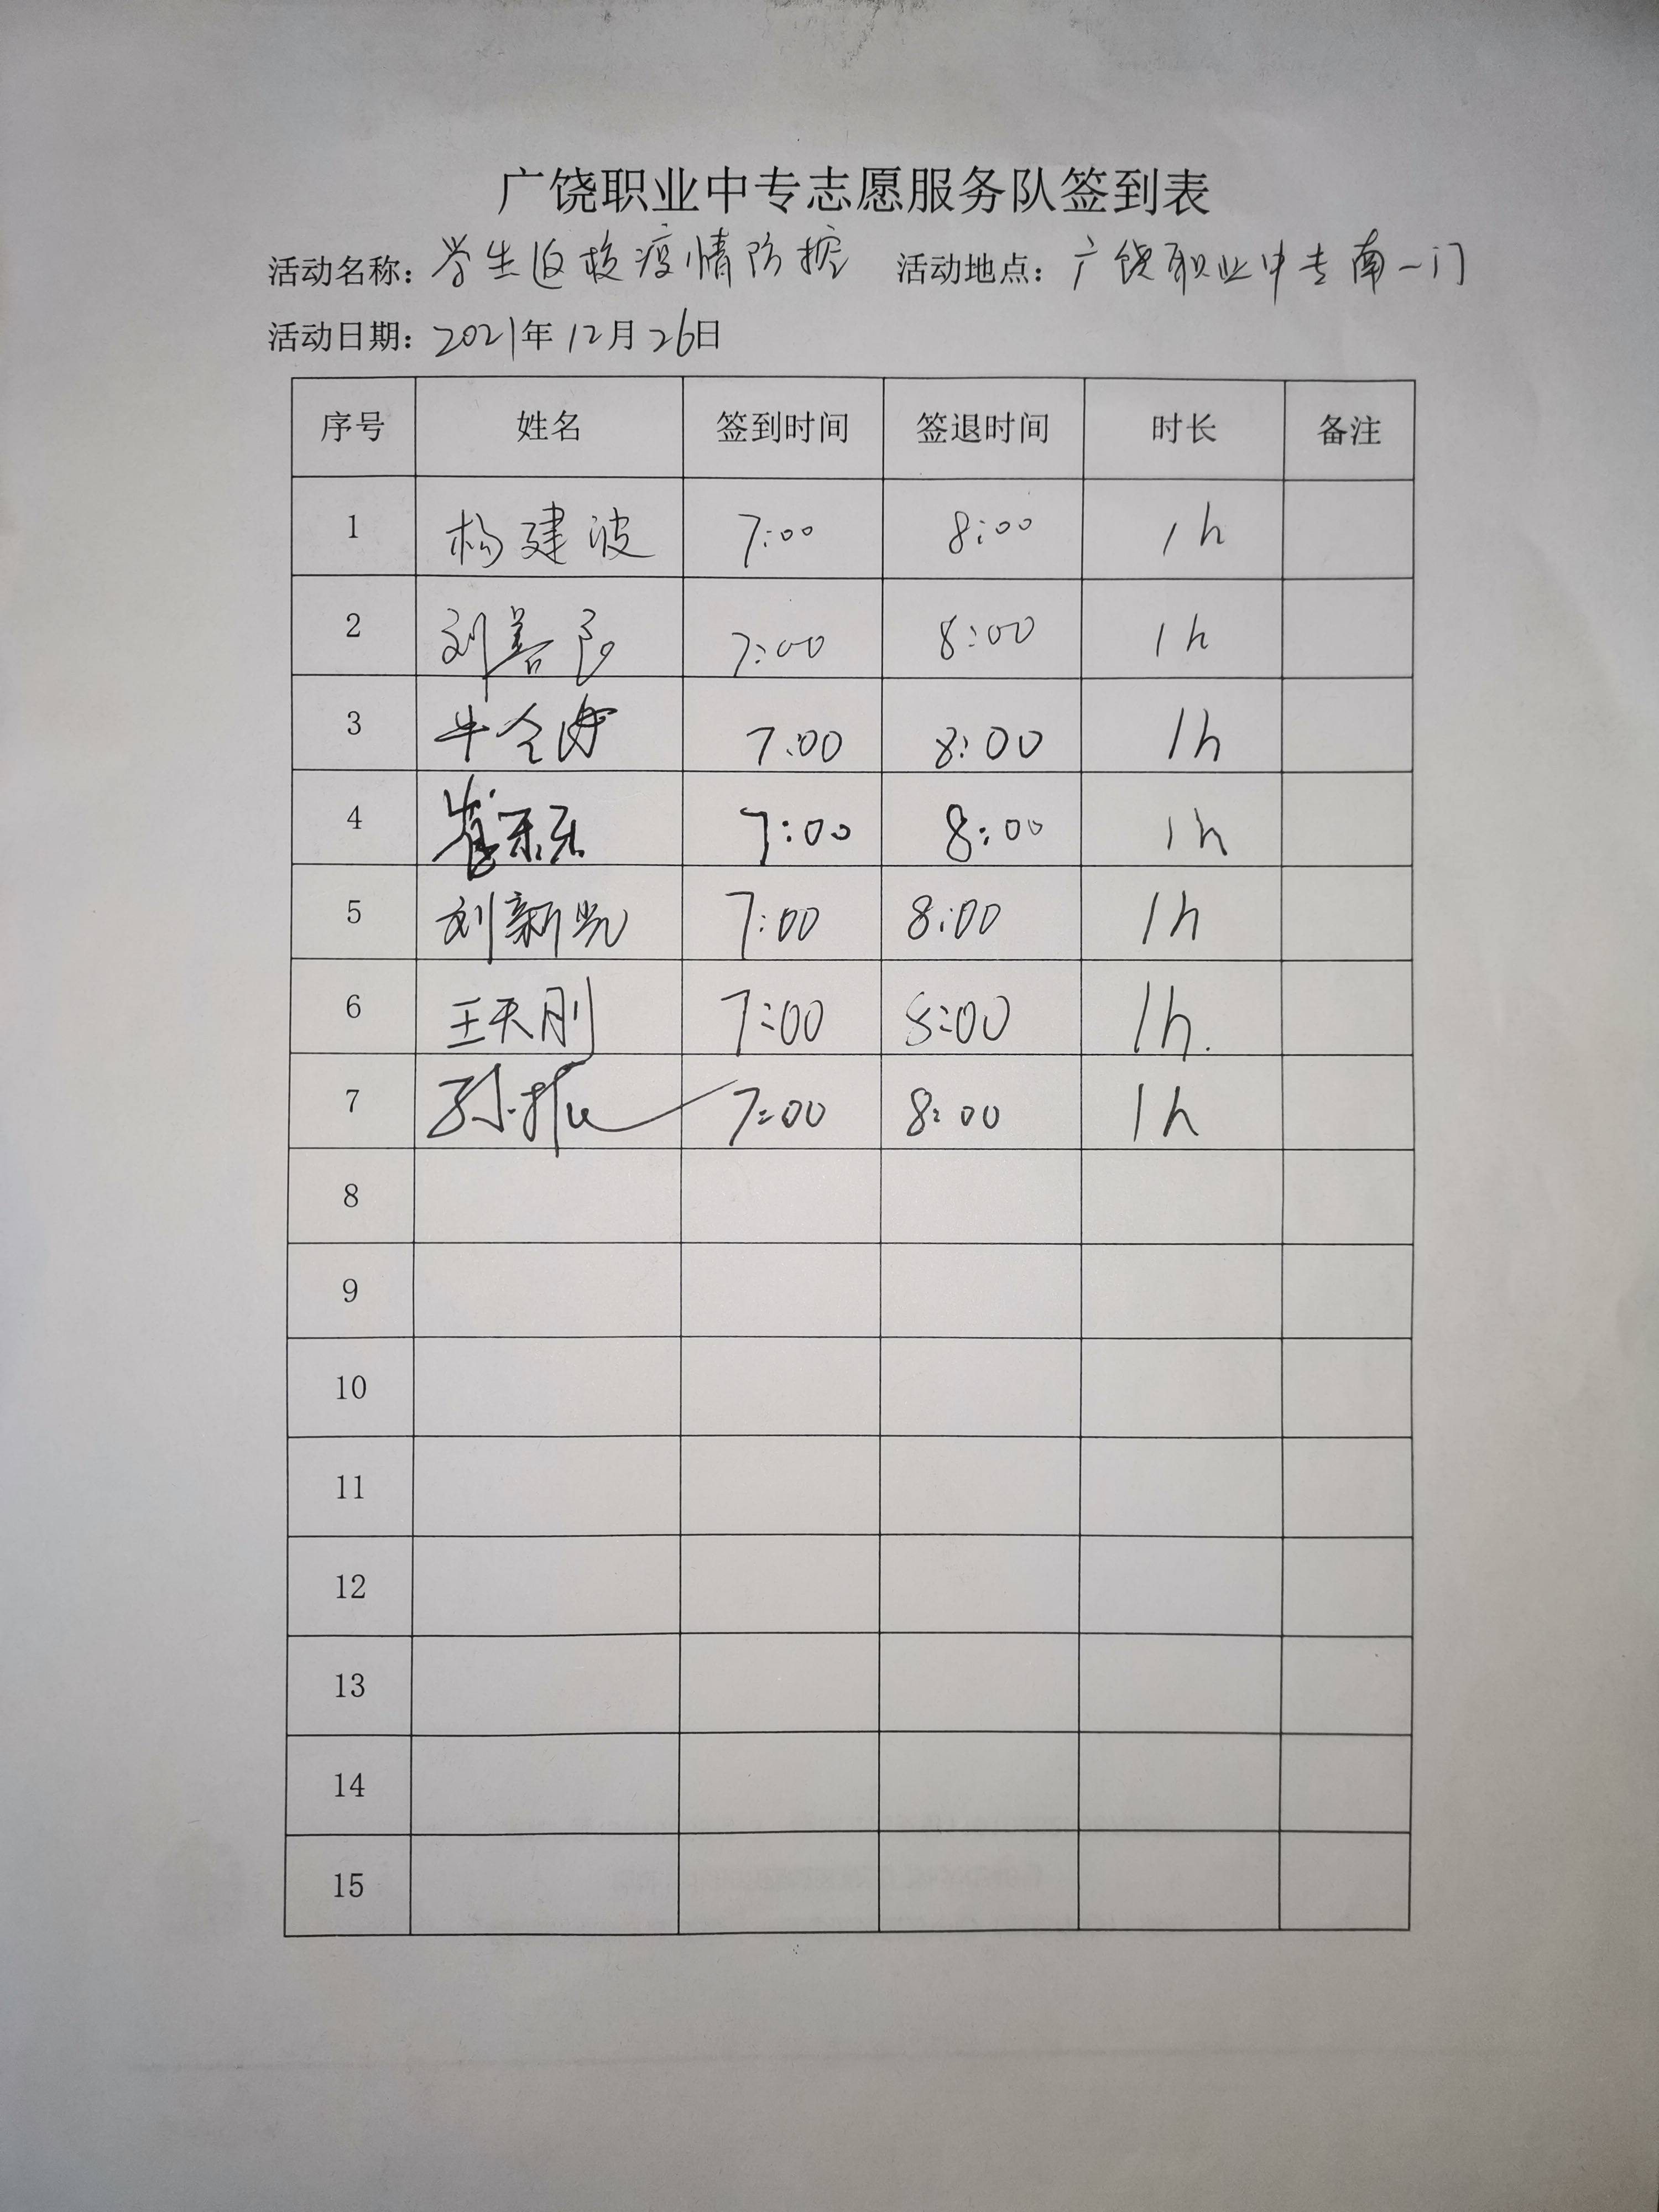 广饶职业中专志愿服务队签到表
活动名称：学生返校疫情防控 活动地点：广饶职业中专南一门
活动日期：2021年12月26日
序号 姓名 签到时间 签退时间 时长 备注
1 杨建波 7:00 8:00 1h
2 刘善良 7:00 8:00 1h
3 牛全海 7:00 8:00 1h
4 崔乐乐 7:00 8:00 1h
5 刘新光 7:00 8:00 1h
6 王天刚 7:00 8:00 1h.
7 孙 7:00 8:00 1h
8
9
10
11
12
13
14
15